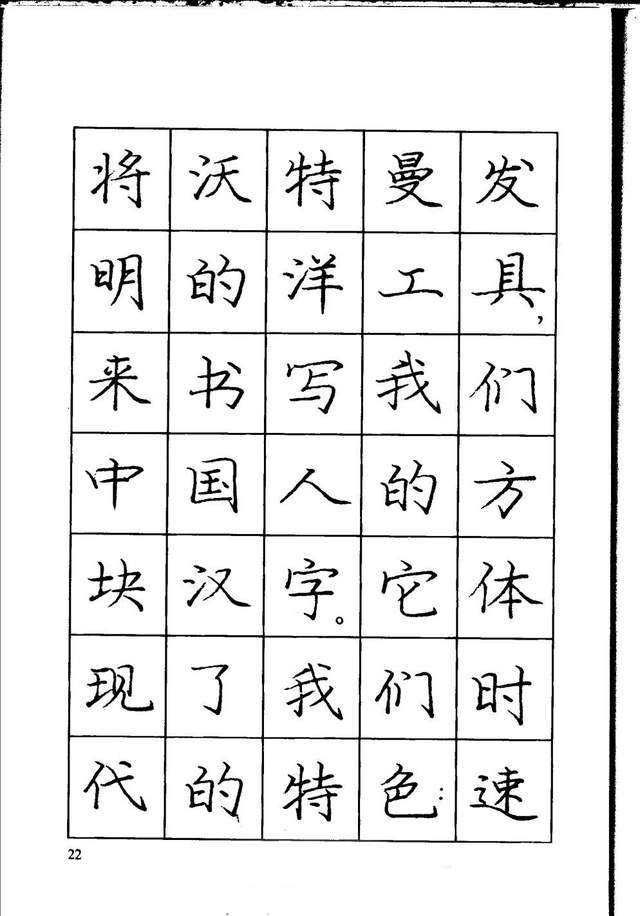 将沃特曼发
明的洋工具,
来书写我们
中国人的方
块汉字。它体
现了我们时
代的特色:速
22